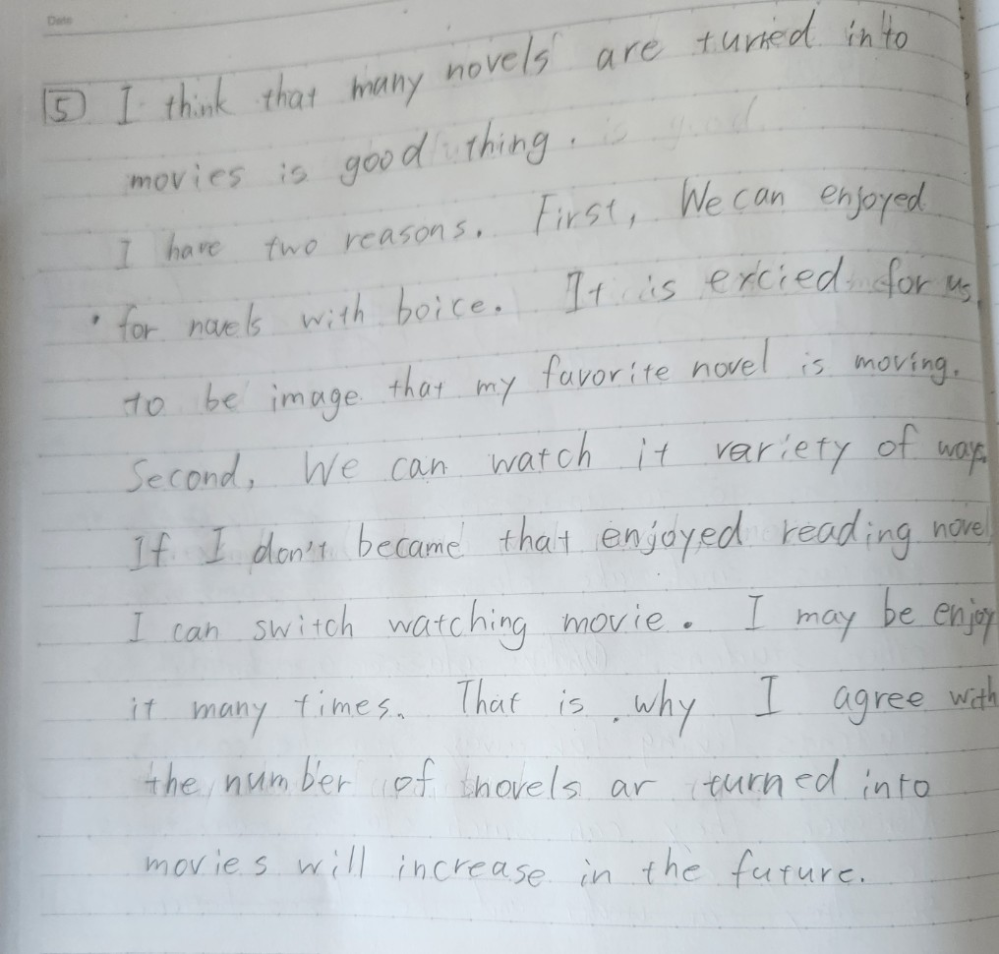 Date
5 I think that many novels are turned into
movies is good thing. is good
I have two reasons. First, We can enjoyed
for novels with boice. It is excied for us,
to be image that my favorite novel is moving.
Second, We can watch it variety of way.
If I don't became that enjoyed reading novel
I can switch watching movie. I may be enjoy
it many times. That is why I agree with
the number of novels ar turned into
movies will increase in the future.